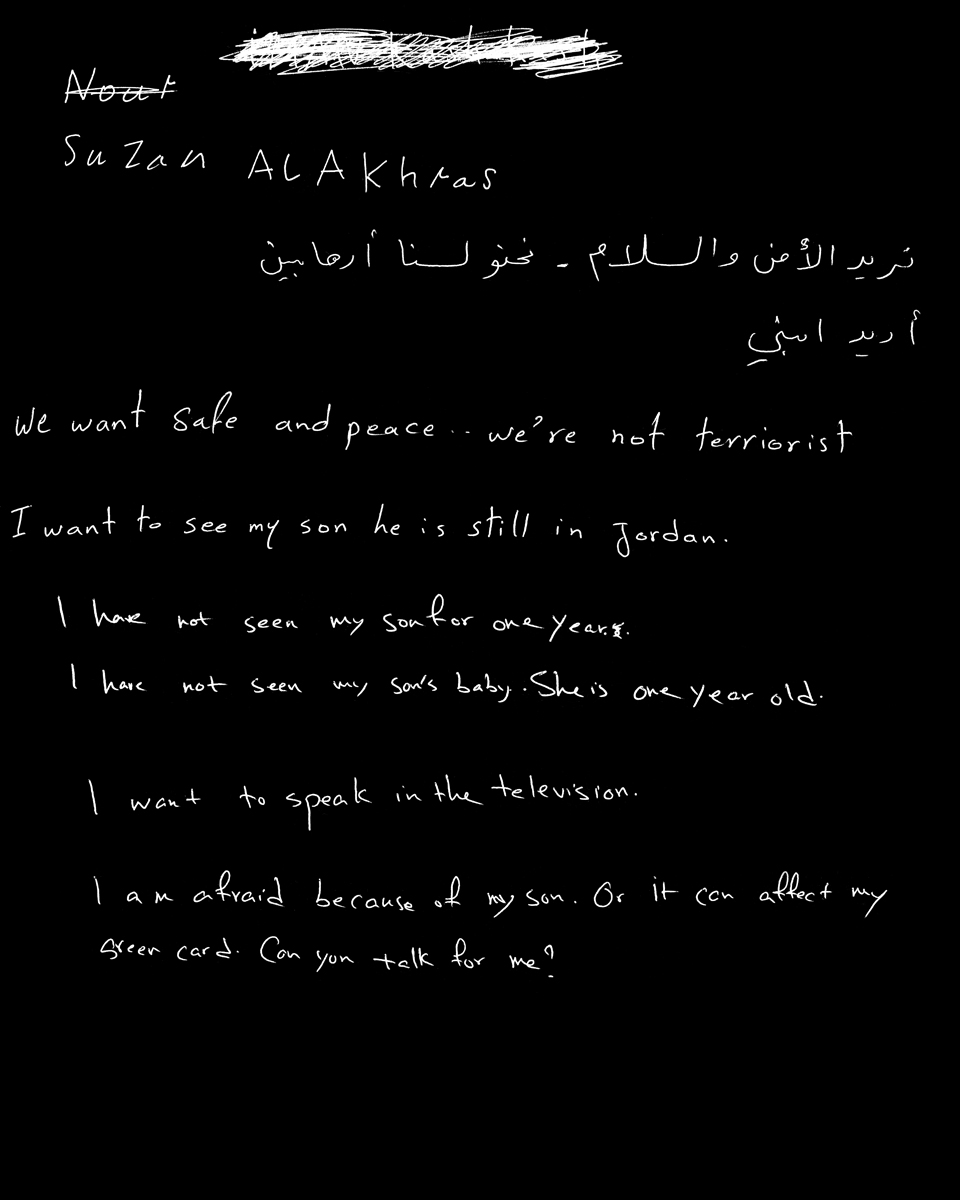 Nour
Suzan ALAKhras
نريد الأمن والسلام - نحنو لسنا أرهابين
أريد ابني
We want safe and peace.. we're not terriorist
I want to see my son he is still in Jordan.
I have not seen my son for one year.
I have not seen my son's baby. She is one year old.
I want to speak in the television.
I am afraid because of my son. Or it can affect my
green card. Can you talk for me?